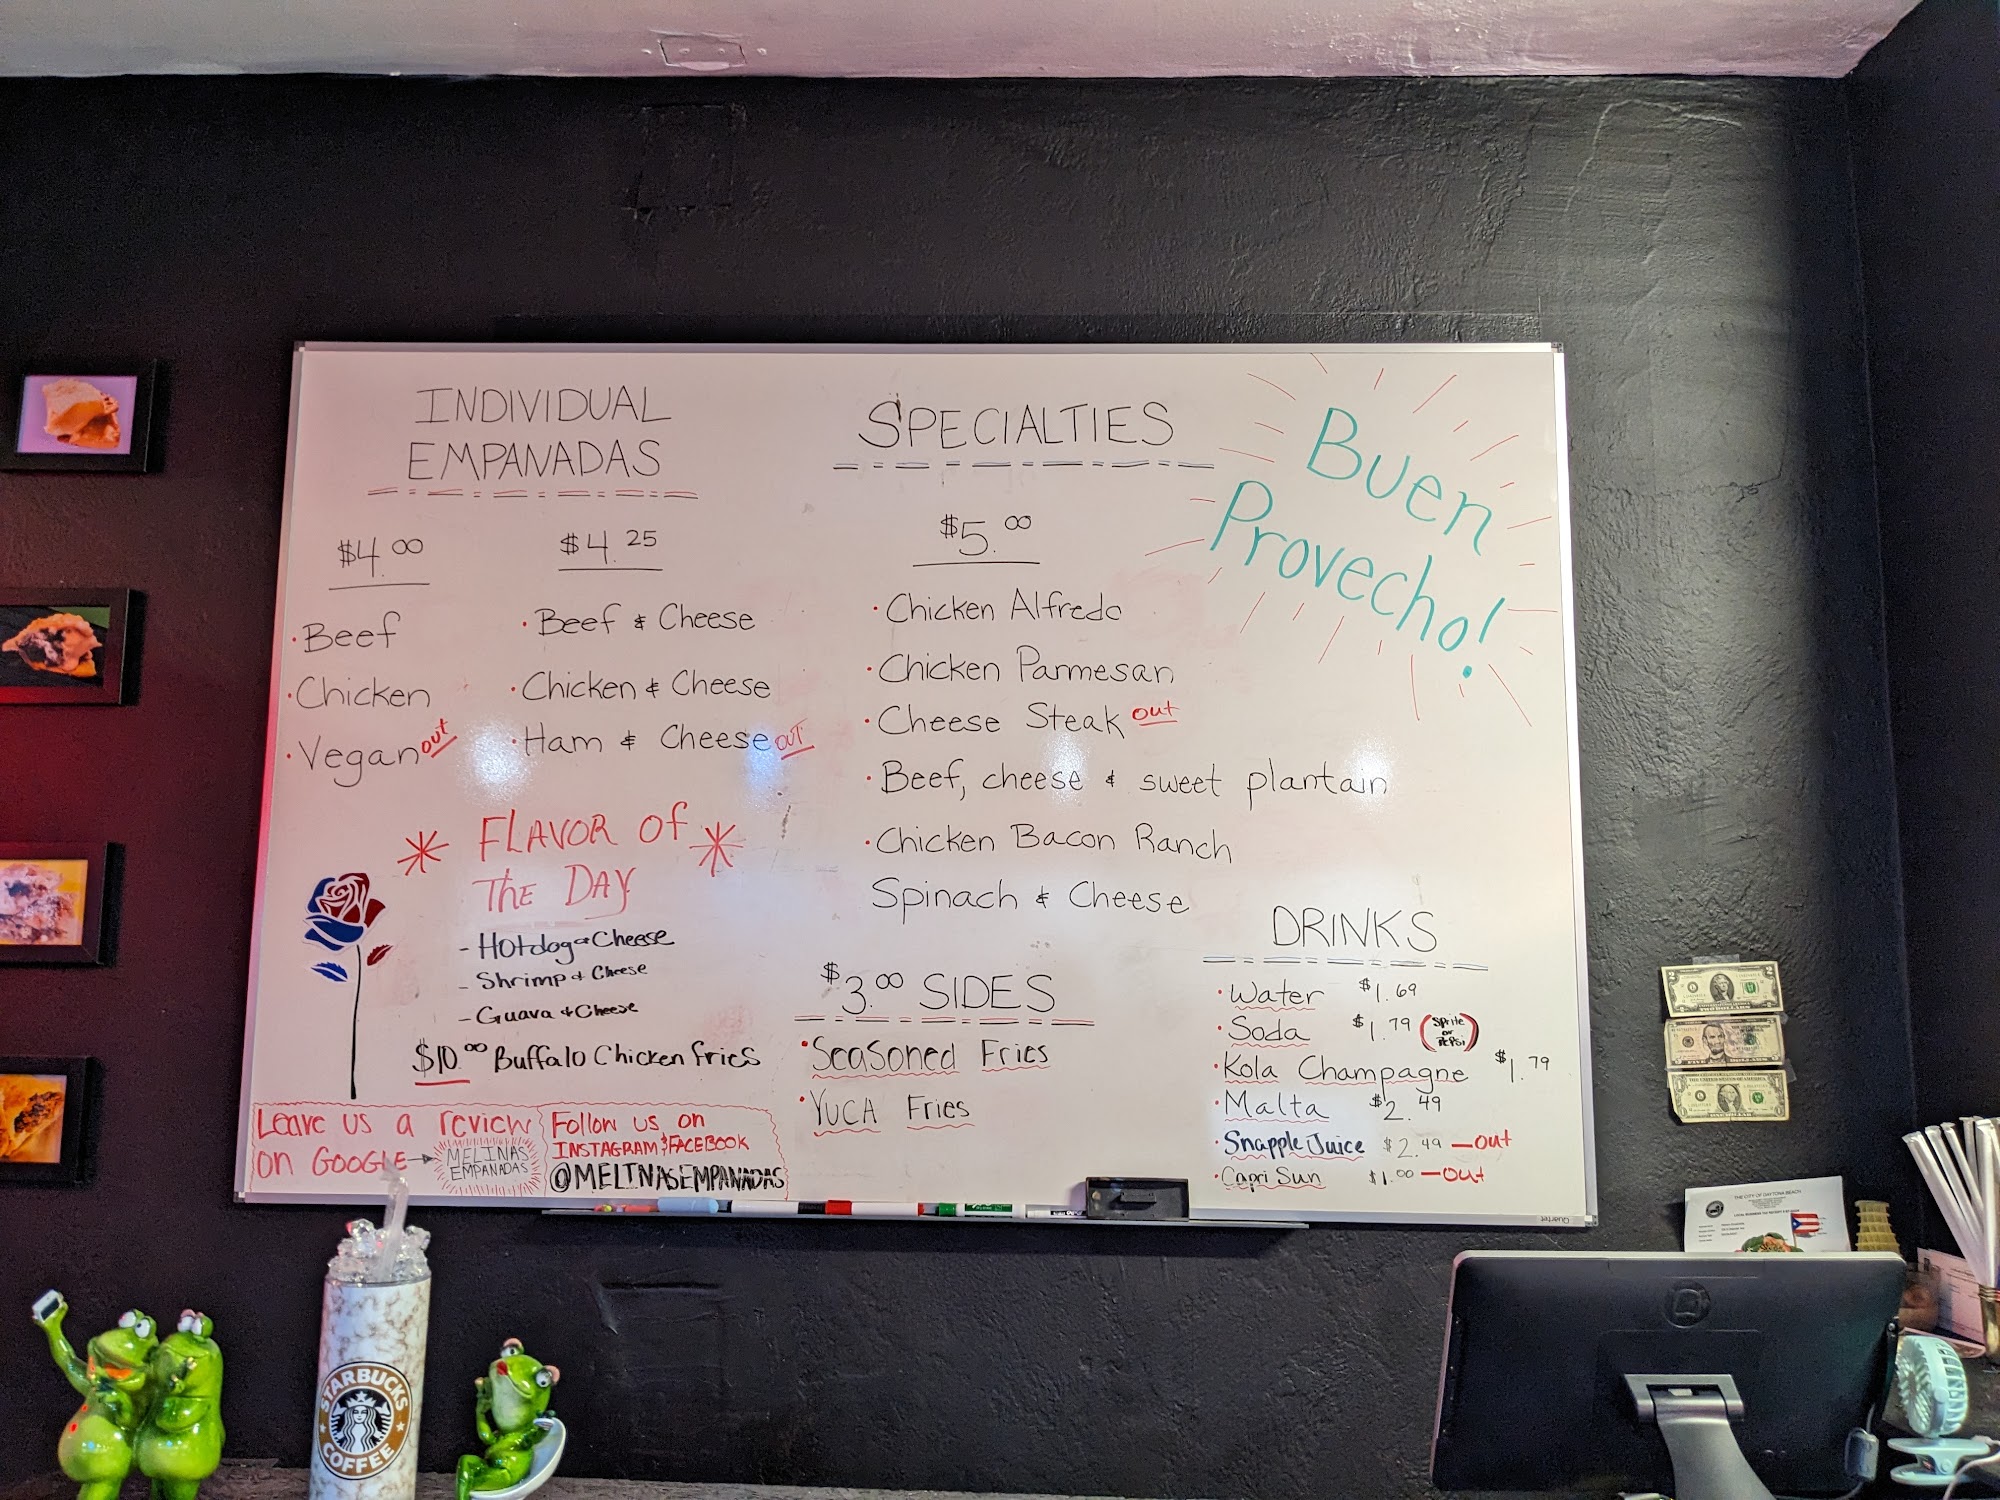 INDIVIDUAL
EMPANADAS
$4.00
• Beef
• Chicken
• Vegan out
$4.25
• Beef & Cheese
• Chicken & Cheese
• Ham & Cheese out
* FLAVOR OF THE DAY *
- Hotdog & Cheese
- Shrimp & Cheese
- Guava & Cheese
$10.00 Buffalo Chicken fries
Leave us a review
on GOOGLE → MELINAS
EMPANADAS
Follow us on
INSTAGRAM & FACEBOOK
@MELINASEMPANADAS
SPECIALTIES
$5.00
• Chicken Alfredo
• Chicken Parmesan
• Cheese Steak out
• Beef, cheese & sweet plantain
• Chicken Bacon Ranch
Spinach & Cheese
$3.00 SIDES
• Seasoned Fries
• Yuca Fries
Buen
Provecho!
DRINKS
• Water $1.69
• Soda $1.79 (Sprite or Pepsi)
• Kola Champagne $1.79
• Malta $2.49
• Snapple Juice $2.49 - out
• Capri Sun $1.00 - out
Quartet
THE CITY OF DAYTONA BEACH
STARBUCKS
COFFEE